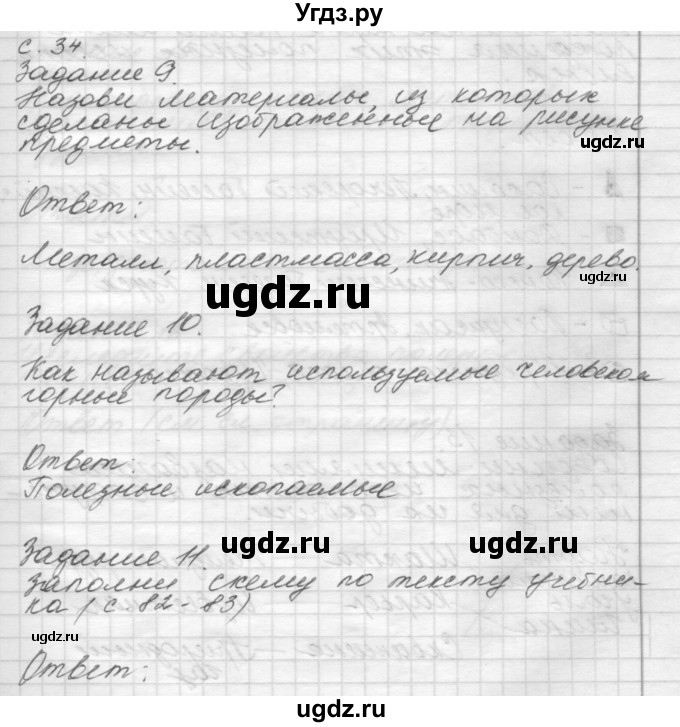 Угдз.ру
с. 34.
Задание 9.
Назови материалы, из которых
сделаны изображённые на рисунке
предметы.
ugdz.ru
Ответ:
Металл, пластмасса, кирпич, дерево.
ugdz.ru
ugdz.ru
Задание 10.
Как называют используемые человеком
горные породы?
Ответ:
Полезные ископаемые
Задание 11.
ugdz.ru
ugdz.ru
Заполни схему по тексту учебни-
ка (с. 82 - 83)
ugdz.ru
Ответ:
ugdz.ru
ugdz.ru